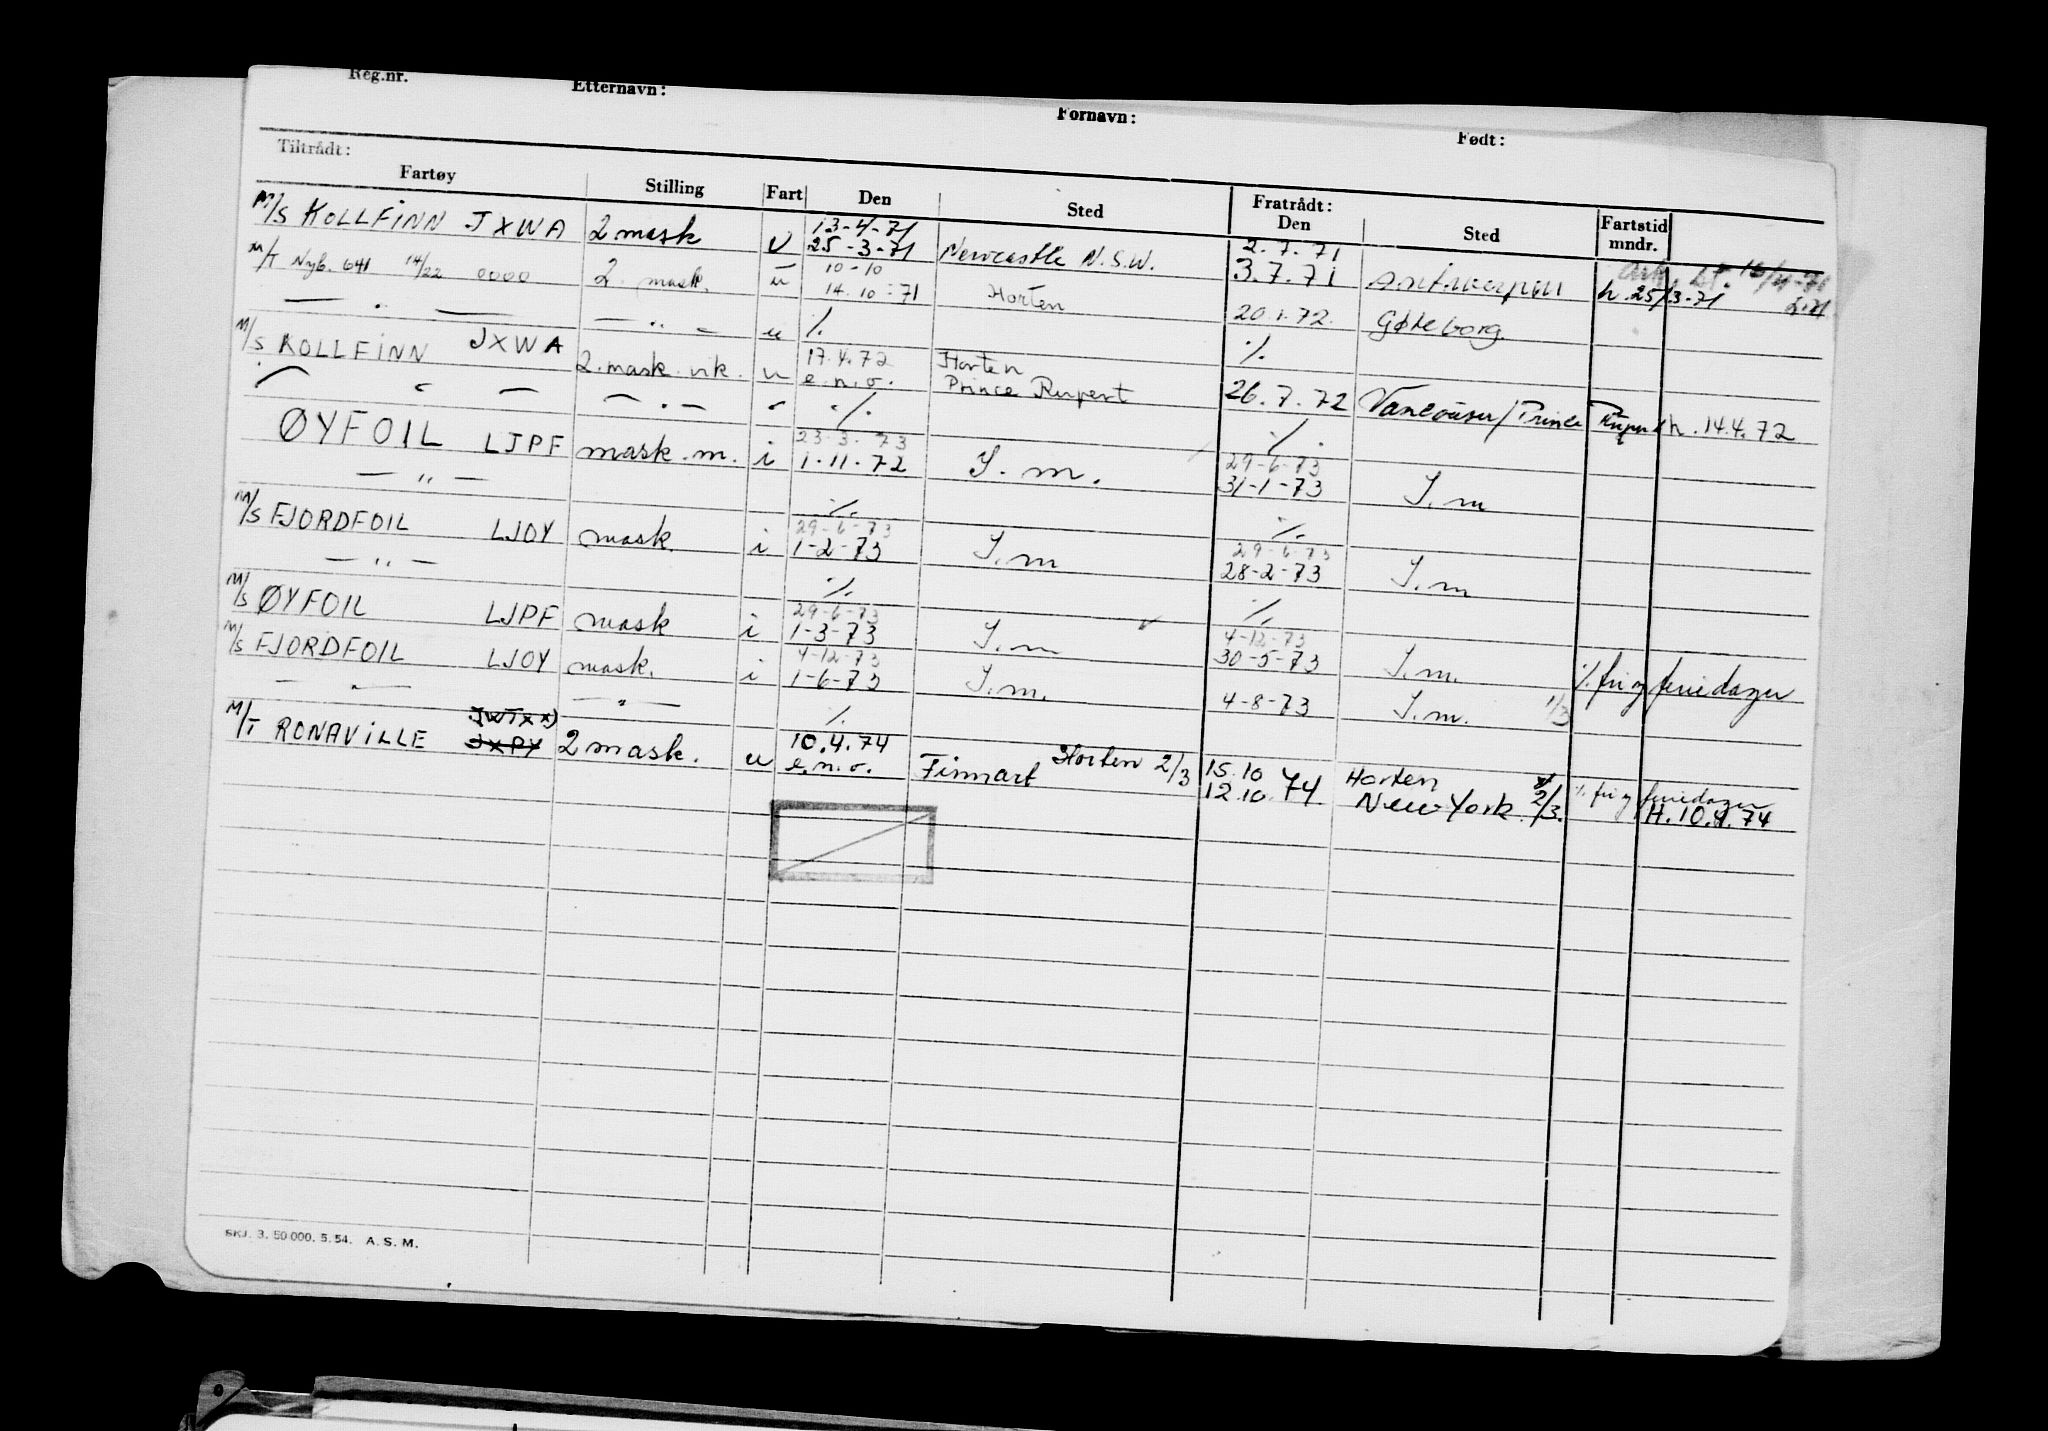 Reg.nr. Etternavn: Fornavn: Født:
Tiltrådt: Fratrådt:
Fartøy Stilling Fart Den Sted Den Sted Fartstid mndr.
13-4-71 2.7.71
M/S KOLLFINN JXWA 2 mask U 25-3-71 Newcastle N.S.W. 3.7.71 Antwerpen h. 25/3-71
10-10
M/T Nyb. 641 14/22 0000 2. mask. u 14.10-71 Horten 20.1.72. Gøteborg.
— „ — — „ — u %. %.
17.4.72 Horten
M/S KOLLFINN JXWA 2. mask. vik. u e.n.o. Prince Rupert 26.7.72 Vancouver/Prince Rupert h. 14.4.72
— „ — — „ — „ %. %.
23-3-73 29-6-73
ØYFOIL LJPF mask.m. i 1-11-72 I.m. 31-1-73 I.m
— „ — %. %.
29-6-73 29-6-73
M/S FJORDFOIL LJOY mask. i 1-2-73 I.m 28-2-73 I.m
— „ — %. %.
29-6-73 4-12-73
M/S ØYFOIL LJPF mask i 1-3-73 I.m 30-5-73 I.m. %. fri og feriedager
4-12-73
M/S FJORDFOIL LJOY mask. i 1-6-73 I.m. 4-8-73 I.m. 1/3
— „ — — „ %. %. fri og feriedager
JWTX x) 10.4.74 Horten 2/3 15.10 Horten
M/T RONAVILLE JXPY 2 mask. u e.n.o. Finnart 12.10.74 New York 2/3. H. 10.4.74
SKJ. 3. 50 000. 5. 54. A. S. M.